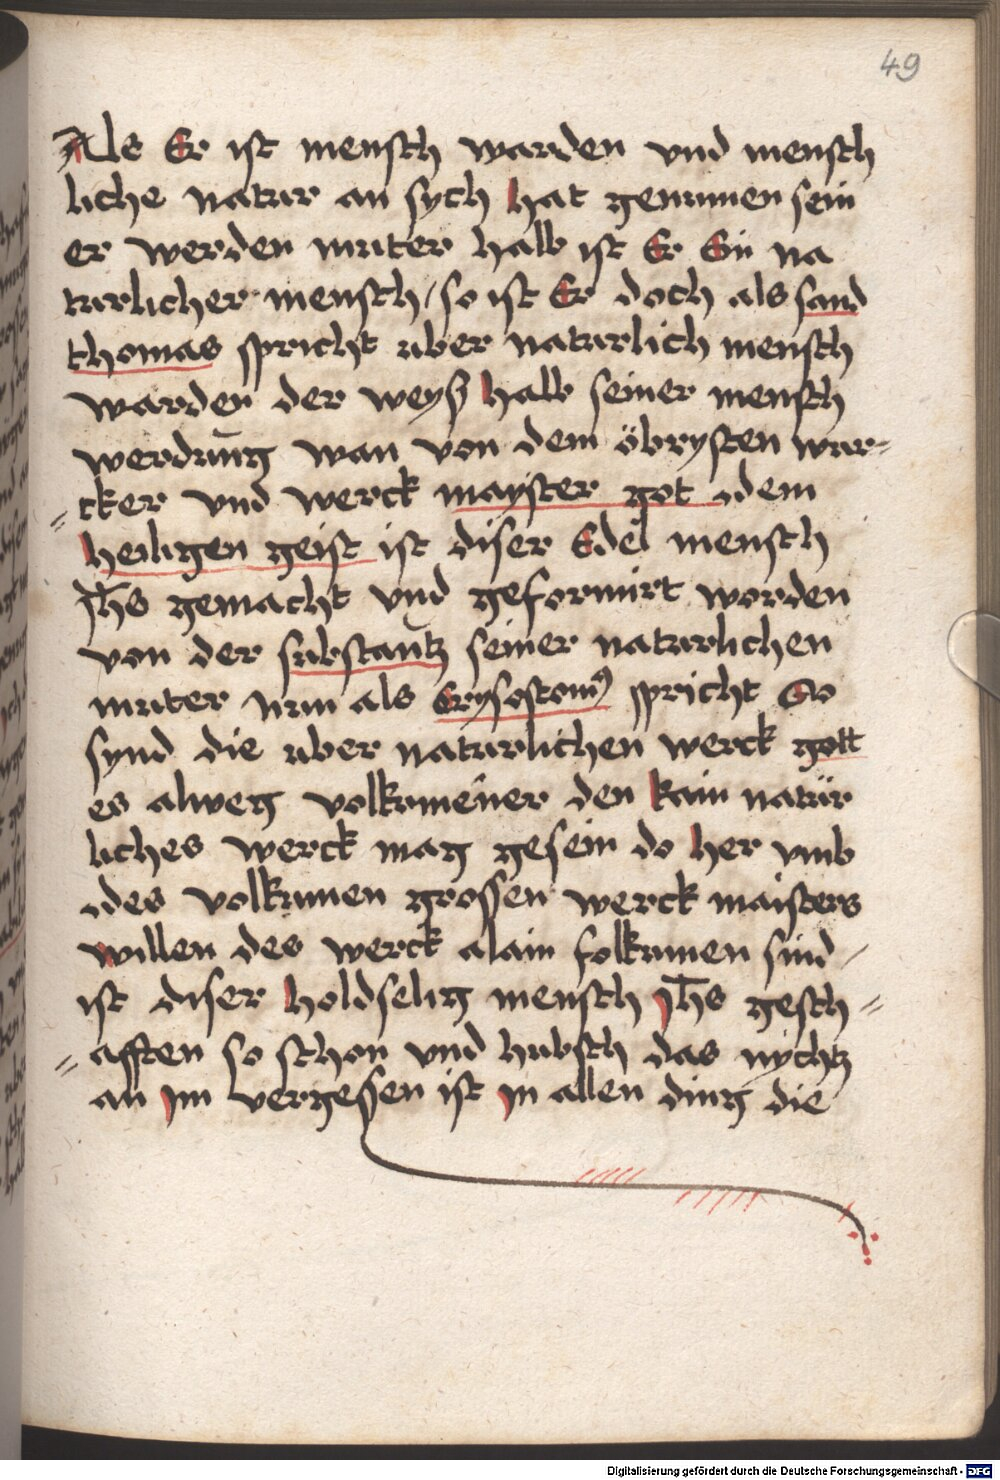 49
Als Er ist mensch warden vnd mensch
liche natur an sych hat genumen sein
er werden muter halb ist Er Ein na
turlicher mensch / so ist Er doch als sand
thomas spricht uber naturlich mensch
warden der weyß halb seiner mensch
werdung wan von dem öbrysten wur-
cker vnd werck mayster got dem
heiligen geist ist diser Edel mensch
Jhs gemacht vnd geformirt worden
von der substantz seiner naturlichen
muter nun als Crysostomꝰ spricht So
synd die uber naturlichen werck gott
es alweg volkumener den kain natür
liches werck mag gesein do her vmb
des volkumen grossen werck maisters
willen des werck alain folkumen sind /
ist diser holdselig mensch Jhs gesch=
=afften so schon vnd hubsch das nychtz
an Im vergessen ist In allen ding die
Digitalisierung gefördert durch die Deutsche Forschungsgemeinschaft - DFG